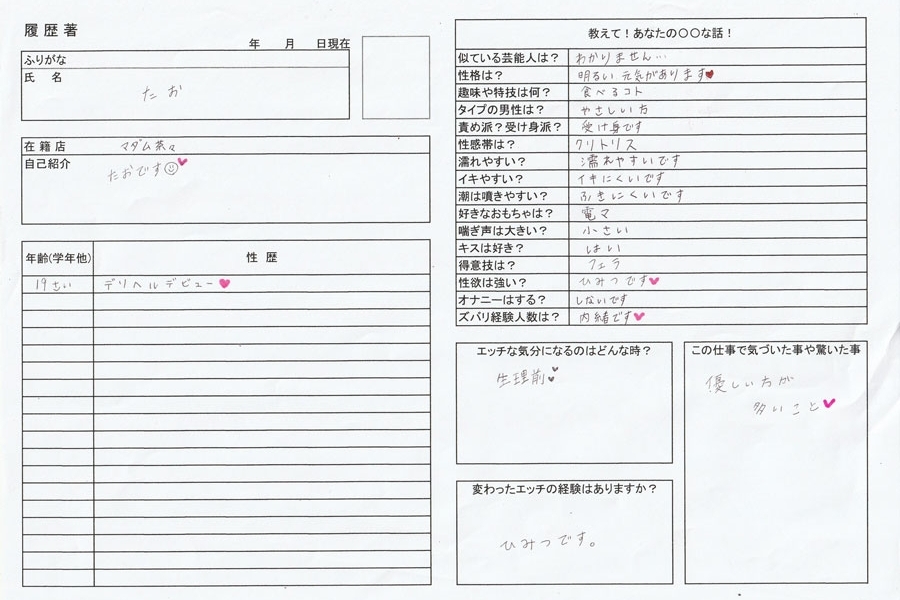 履歴著
年 月 日現在
ふりがな
氏 名
たお
在籍店 マダム茶々
自己紹介
たおです
年齢(学年他) 性 歴
19さい デリヘルデビュー
教えて!あなたの〇〇な話!
似ている芸能人は? わかりません…
性格は? 明るい 元気があります
趣味や特技は何? 食べるコト
タイプの男性は? やさしい方
責め派?受け身派? 受け身です
性感帯は? クリトリス
濡れやすい? 濡れやすいです
イキやすい? イキにくいです
潮は噴きやすい? ふきにくいです
好きなおもちゃは? 電マ
喘ぎ声は大きい? 小さい
キスは好き? はい
得意技は? フェラ
性欲は強い? ひみつです
オナニーはする? しないです
ズバリ経験人数は? 内緒です
エッチな気分になるのはどんな時?
生理前
変わったエッチの経験はありますか?
ひみつです。
この仕事で気づいた事や驚いた事
優しい方が
多いこと